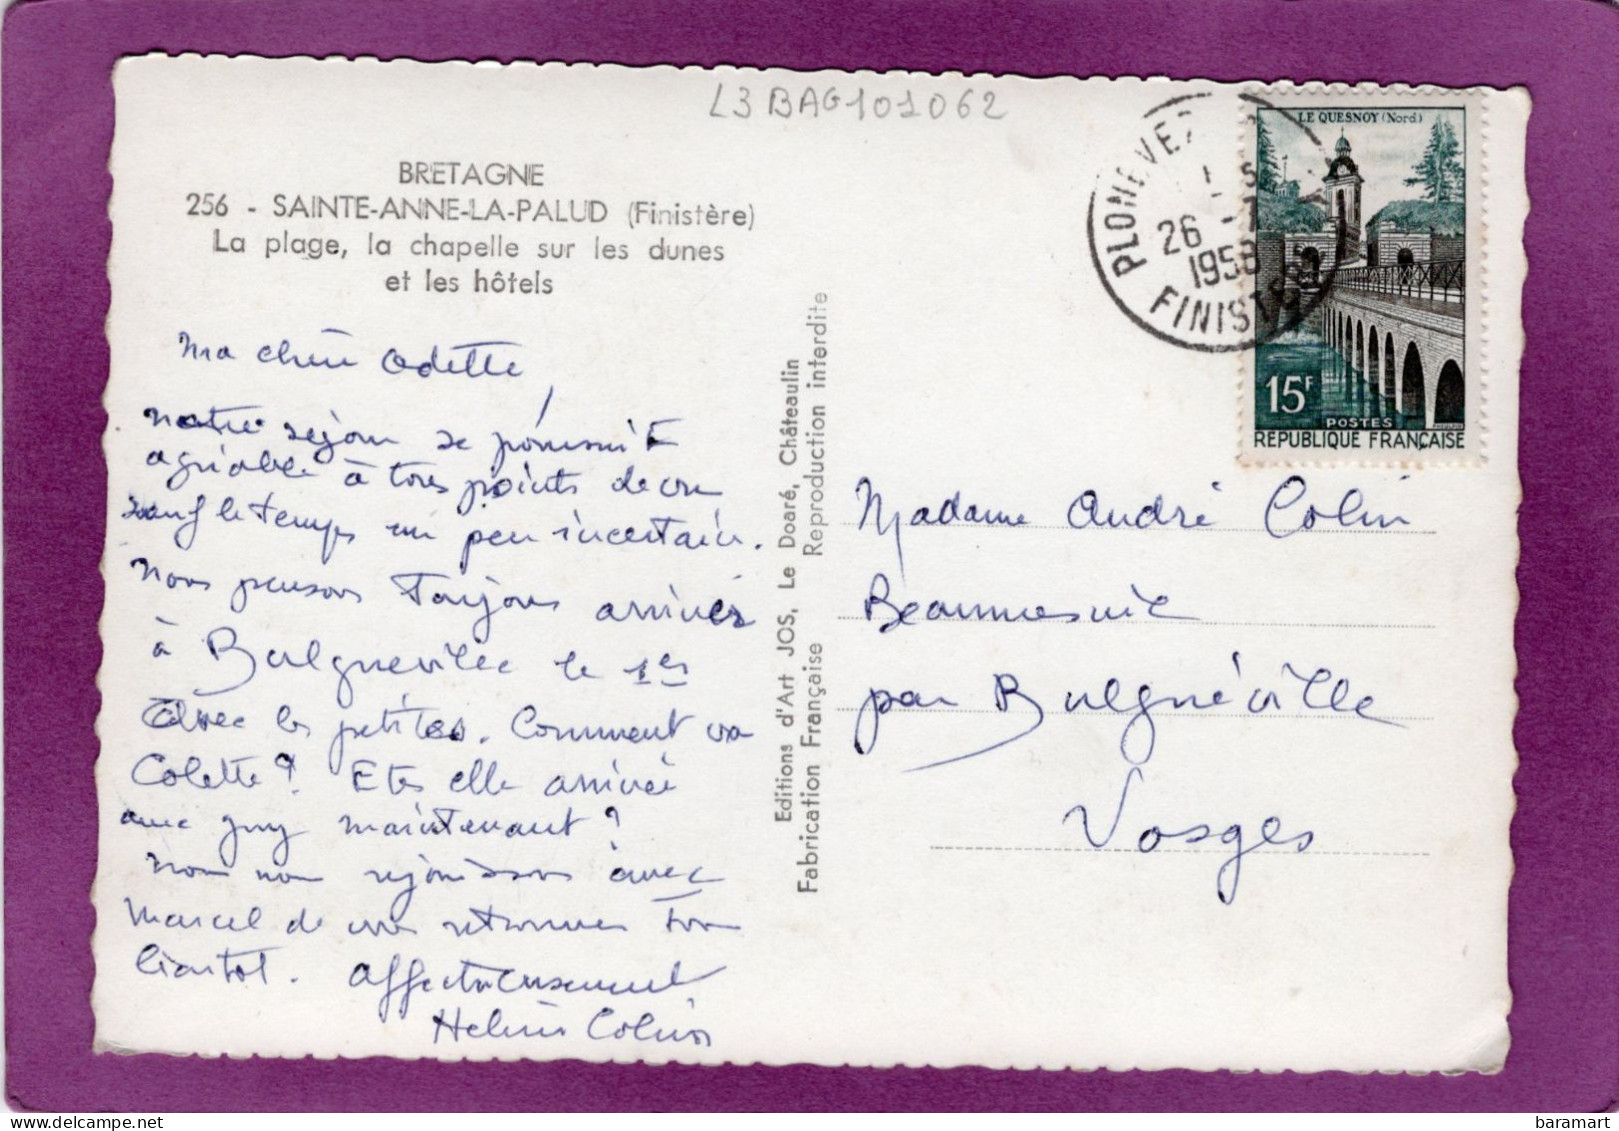 L3 BAG101062
BRETAGNE
256 - SAINTE-ANNE-LA-PALUD (Finistère)
La plage, la chapelle sur les dunes
et les hôtels
Ma chère Odette,
notre séjour se poursuit
agréable à tous points de vue
sauf le temps un peu incertain.
nous pensons toujours arriver
à Bulgneville le 1er
avec les petites. Comment va
Colette ? Etes elle arrivée
avec guy maintenant ?
nous nous rejouissons avec
Marcel de vous retrouver tous
bientôt. Affectueusement
Colin
Editions d'Art JOS, Le Doaré, Châteaulin
Fabrication Française Reproduction interdite
PLONEVEZ
26 -7
1958
FINISTERE
LE QUESNOY (Nord)
15F
POSTES
REPUBLIQUE FRANÇAISE
Madame André Colin
par Bulgnéville
Vosges
baramart